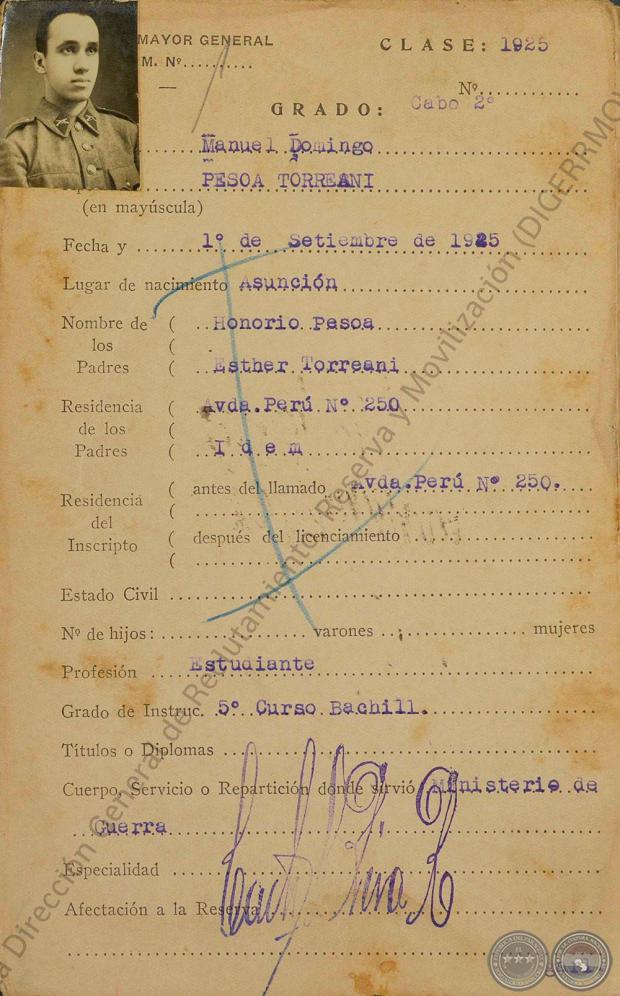 MAYOR GENERAL
CLASE: 1925
M. Nº..........
Nº............
GRADO: Cabo 2º
Manuel Domingo
PESOA TORREANI
(en mayúscula)
Fecha y ....... 1º de Setiembre de 1925
Lugar de nacimiento Asunción
Nombre de los Padres ( Honorio Pesoa
( Esther Torreani
Residencia de los Padres ( Avda.Perú Nº 250
( I d e m
Residencia del Inscripto ( antes del llamado Avda.Perú Nº 250.
( después del licenciamiento
Estado Civil
Nº de hijos: varones mujeres
Profesión Estudiante
Grado de Instruc. 5º Curso Bachill.
Títulos o Diplomas
Cuerpo, Servicio o Repartición donde sirvió Ministerio de
Guerra
Especialidad
Afectación a la Reserva
Dirección General de Reclutamiento, Reserva y Movilización (DIGERRMOV